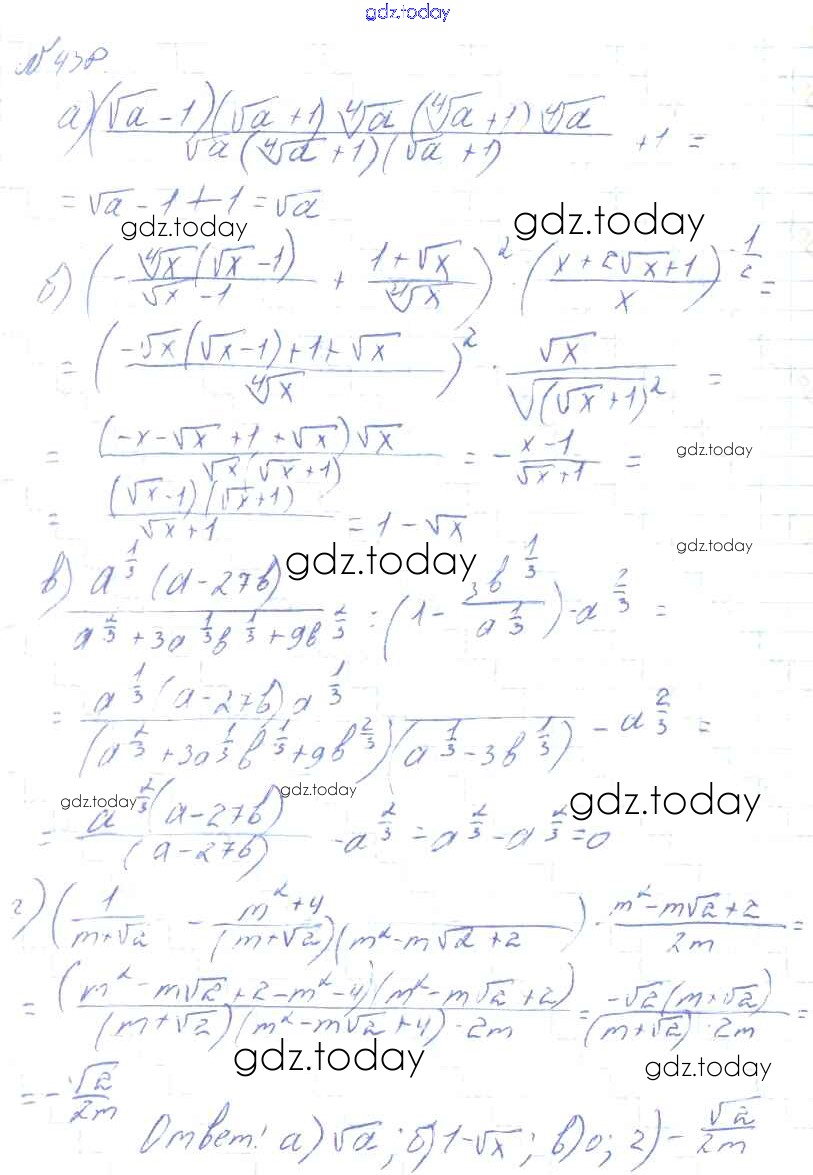 gdz.today
№ 438.
а) (√a - 1)(√a + 1) ⁴√a (⁴√a + 1) ⁴√a / √a (⁴√a + 1)(√a + 1) + 1 =
= √a - 1 + 1 = √a
gdz.today gdz.today
б) (- ⁴√x (√x - 1) / √x - 1 + 1 + √x / ⁴√x)² · (x + 2√x + 1 / x)^(-1/2) =
= (-√x (√x - 1) + 1 + √x / ⁴√x)² · √x / √(√x + 1)² =
= (-x - √x + 1 + √x) √x / √x (√x + 1) = - x - 1 / √x + 1 =
gdz.today
= (√x - 1)(√x + 1) / √x + 1 = 1 - √x
gdz.today gdz.today
в) a^(1/3) (a - 27b) / a^(2/3) + 3a^(1/3) b^(1/3) + 9b^(2/3) : (1 - 3b^(1/3) / a^(1/3)) - a^(2/3) =
= a^(1/3) (a - 27b) a^(1/3) / (a^(2/3) + 3a^(1/3) b^(1/3) + 9b^(2/3)) (a^(1/3) - 3b^(1/3)) - a^(2/3) =
gdz.today gdz.today gdz.today
= a^(2/3) (a - 27b) / (a - 27b) - a^(2/3) = a^(2/3) - a^(2/3) = 0
г) (1 / m + √2 - m² + 4 / (m + √2)(m² - m√2 + 2) · m² - m√2 + 2 / 2m =
= (m² - m√2 + 2 - m² - 4)(m² - m√2 + 2) / (m + √2)(m² - m√2 + 4) · 2m = -√2 (m + √2) / (m + √2) · 2m =
gdz.today gdz.today
= - √2 / 2m
Ответ: а) √a; б) 1 - √x; в) 0; г) - √2 / 2m